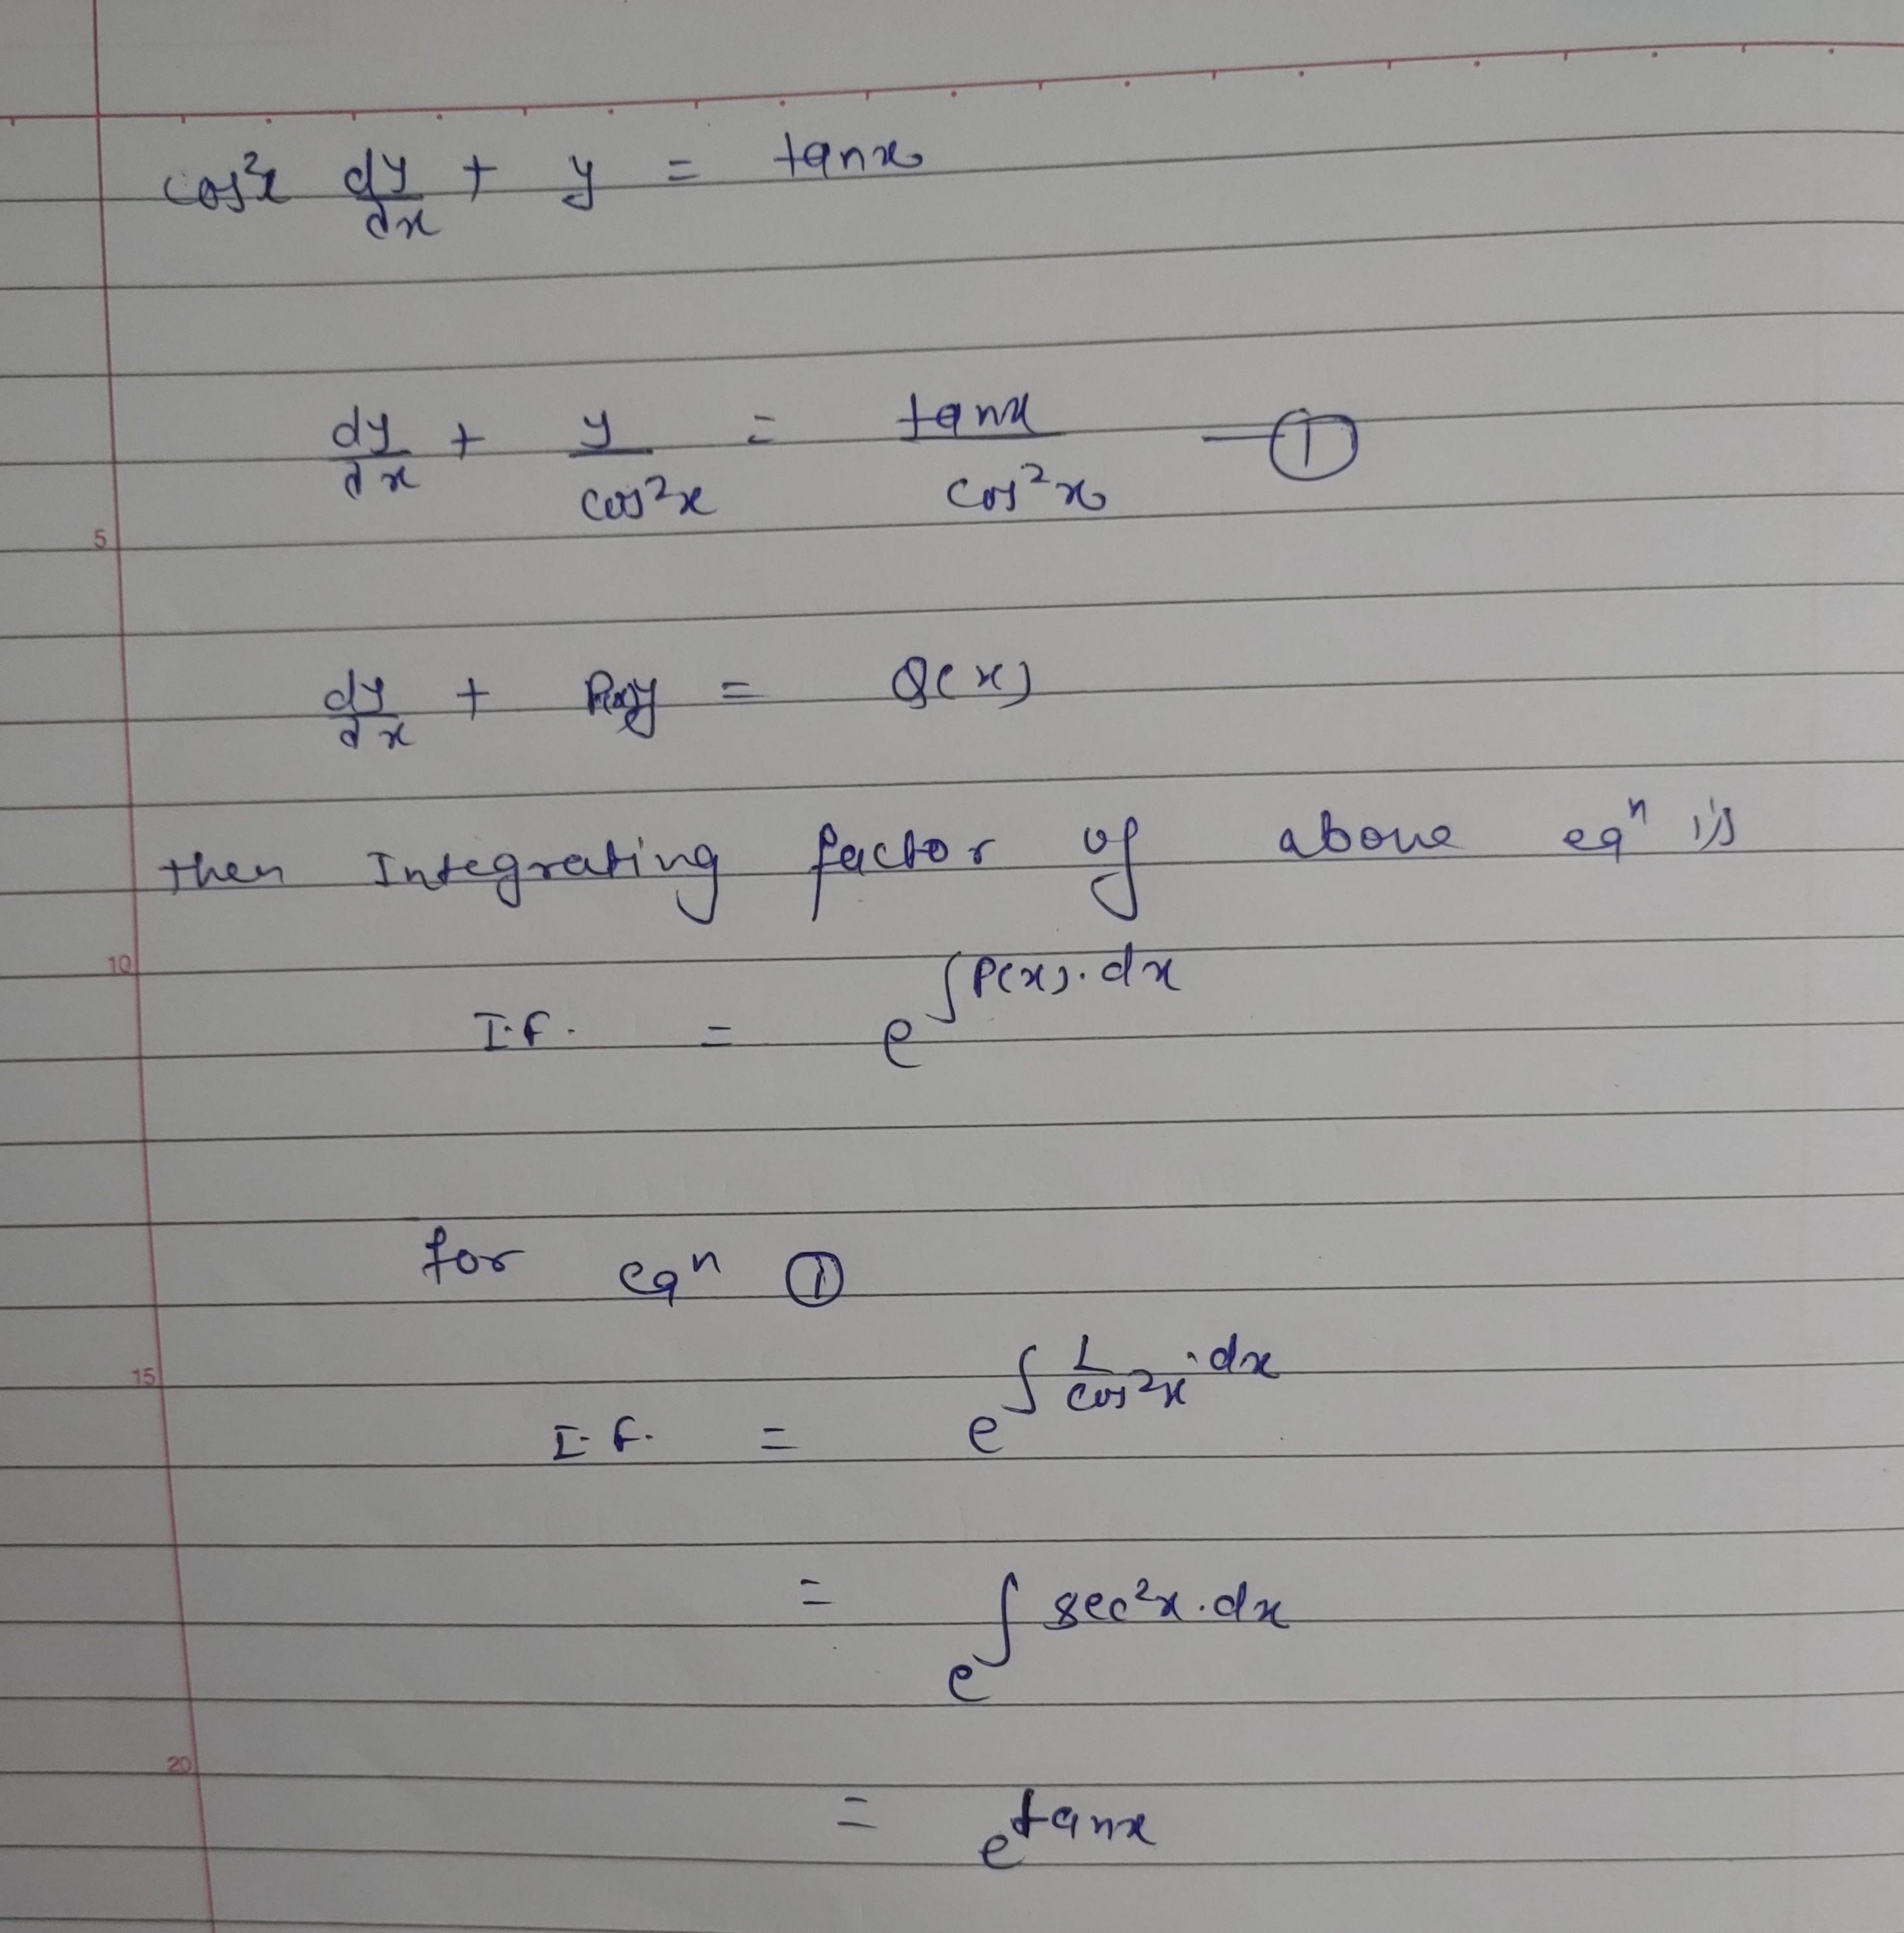 cos²x dy/dx + y = tanx
dy/dx + y/cos²x = tanx/cos²x — ①
5
dy/dx + P(x)y = Q(x)
then Integrating factor of above eqⁿ is
10
I.F. = e^∫P(x).dx
for eqⁿ ①
15
I.F. = e^∫ 1/cos²x .dx
= e^∫ sec²x.dx
20
= e^tanx